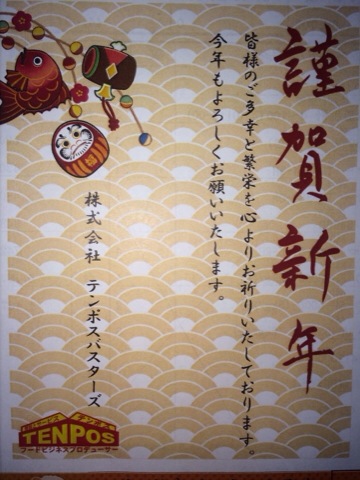 謹賀新年
皆様のご多幸と繁栄を心よりお祈りいたしております。
今年もよろしくお願いいたします。
株式会社 テンポスバスターズ
TENPOS
フードビジネスプロデューサー